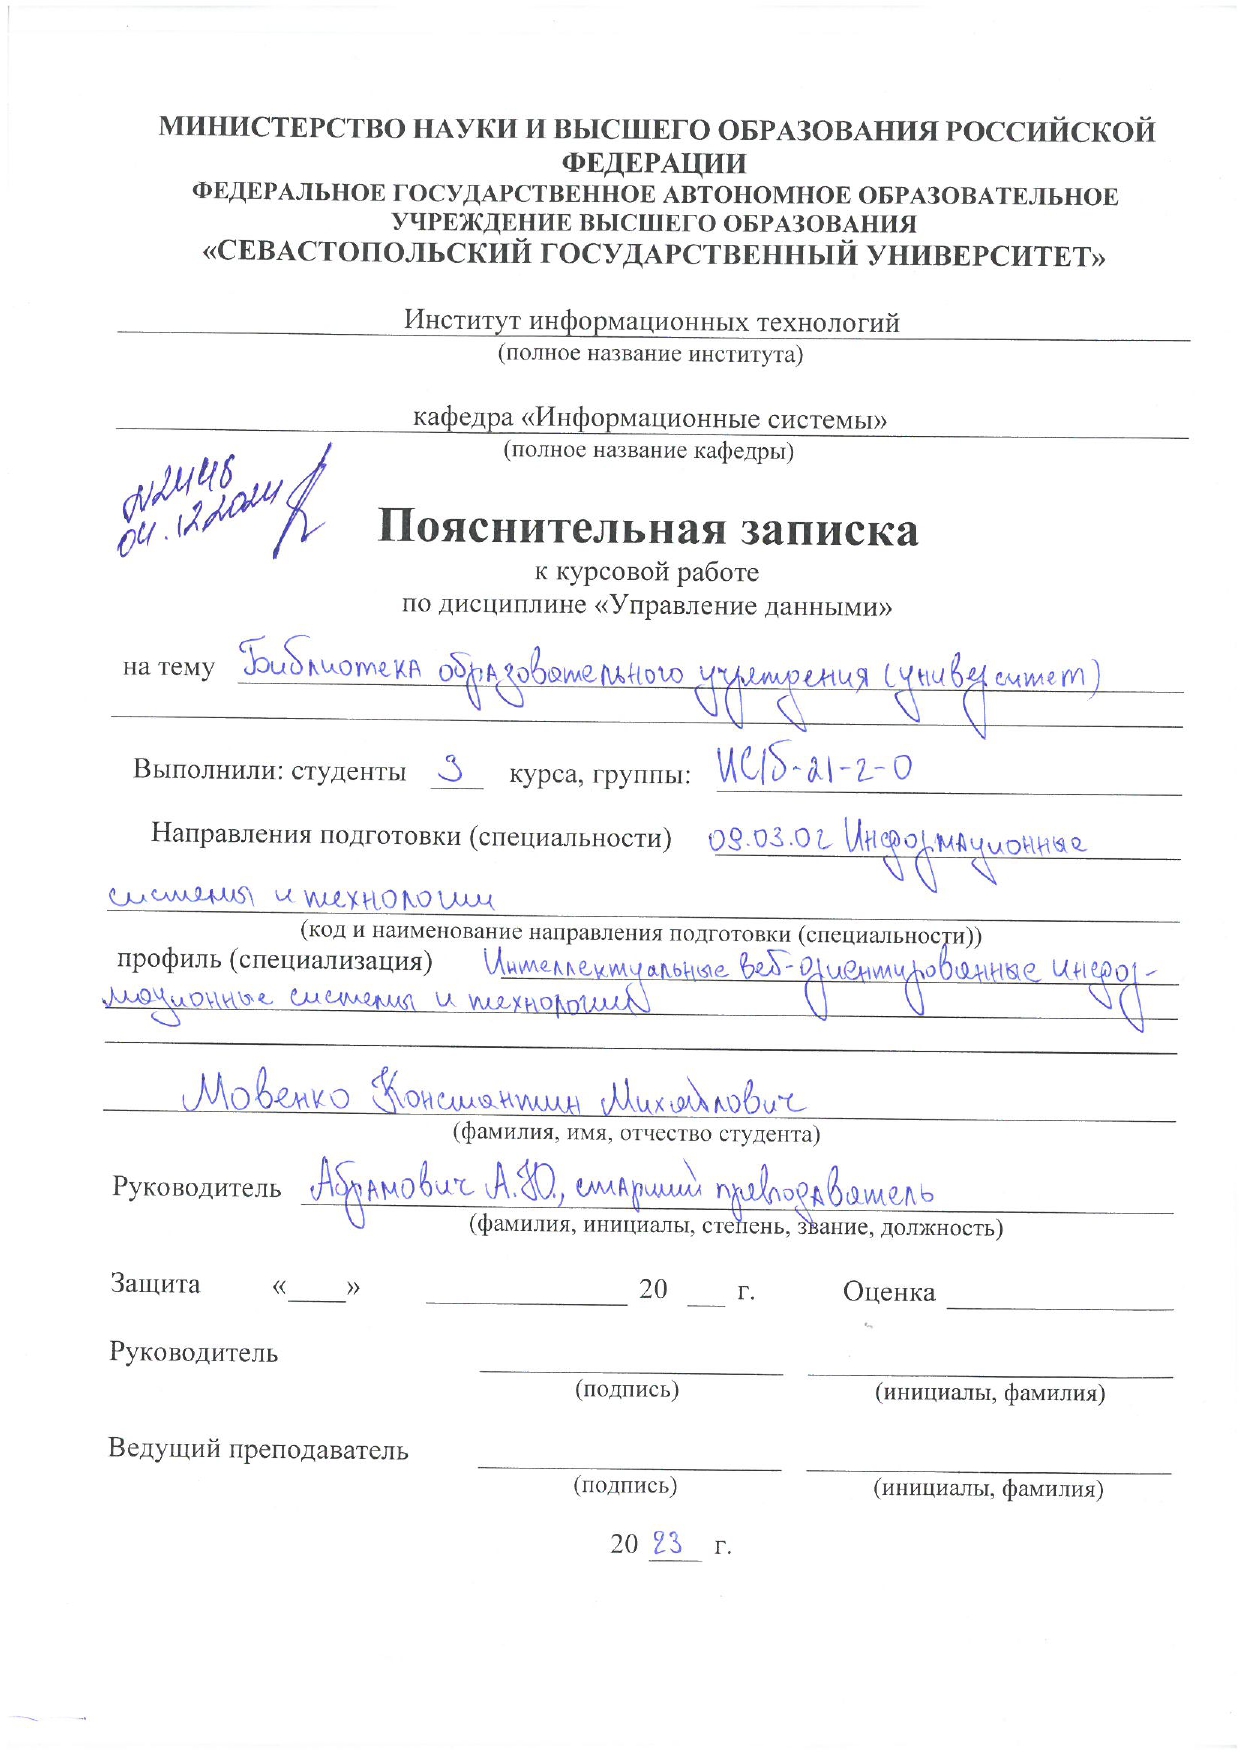 МИНИСТЕРСТВО НАУКИ И ВЫСШЕГО ОБРАЗОВАНИЯ РОССИЙСКОЙ
ФЕДЕРАЦИИ
ФЕДЕРАЛЬНОЕ ГОСУДАРСТВЕННОЕ АВТОНОМНОЕ ОБРАЗОВАТЕЛЬНОЕ
УЧРЕЖДЕНИЕ ВЫСШЕГО ОБРАЗОВАНИЯ
«СЕВАСТОПОЛЬСКИЙ ГОСУДАРСТВЕННЫЙ УНИВЕРСИТЕТ»
Институт информационных технологий
(полное название института)
кафедра «Информационные системы»
(полное название кафедры)
04.12.2024
Пояснительная записка
к курсовой работе
по дисциплине «Управление данными»
на тему Библиотека образовательного учреждения (университет)
Выполнили: студенты 3 курса, группы: ИС/б-21-2-О
Направления подготовки (специальности) 09.03.02 Информационные
системы и технологии
(код и наименование направления подготовки (специальности))
профиль (специализация) Интеллектуальные веб-ориентированные инфор-
мационные системы и технологии
Мовенко Константин Михайлович
(фамилия, имя, отчество студента)
Руководитель Абрамович А.Ю., старший преподаватель
(фамилия, инициалы, степень, звание, должность)
Защита «____» ____________ 20 ___ г. Оценка ____________
Руководитель
(подпись) (инициалы, фамилия)
Ведущий преподаватель
(подпись) (инициалы, фамилия)
20 23 г.